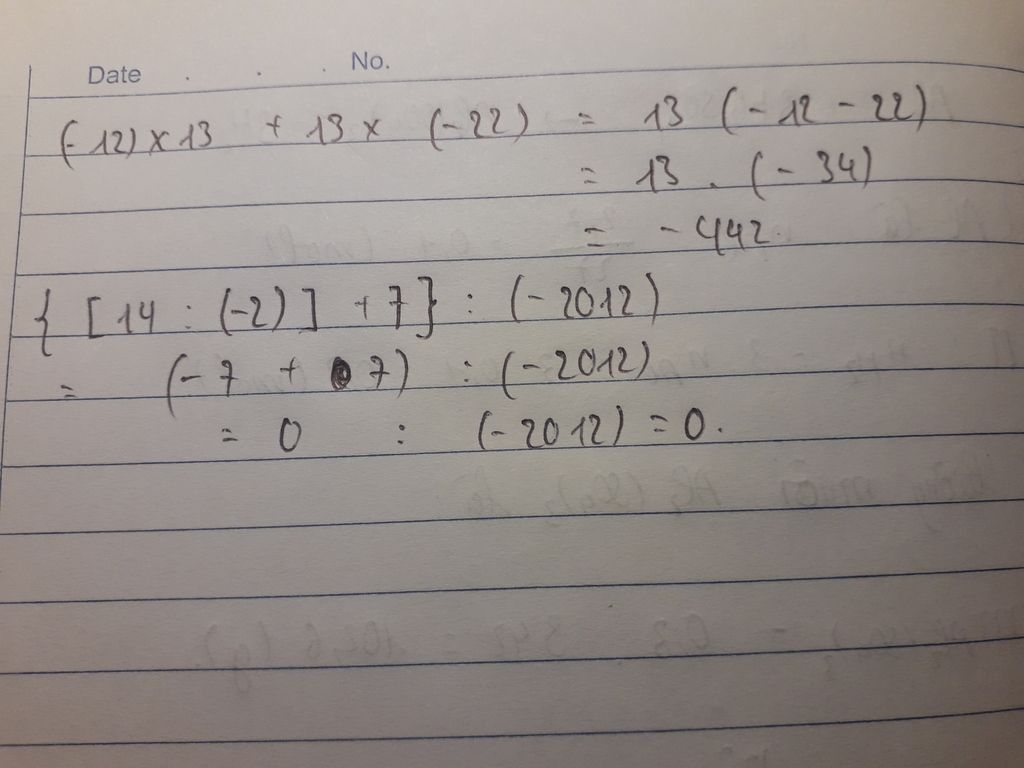 Date . . . No.
(-12) x 13 + 13 x (-22) = 13 (-12 - 22)
= 13 . (-34)
= -442.
{ [14 : (-2)] + 7} : (-2012)
= (-7 + 7) : (-2012)
= 0 : (-2012) = 0.